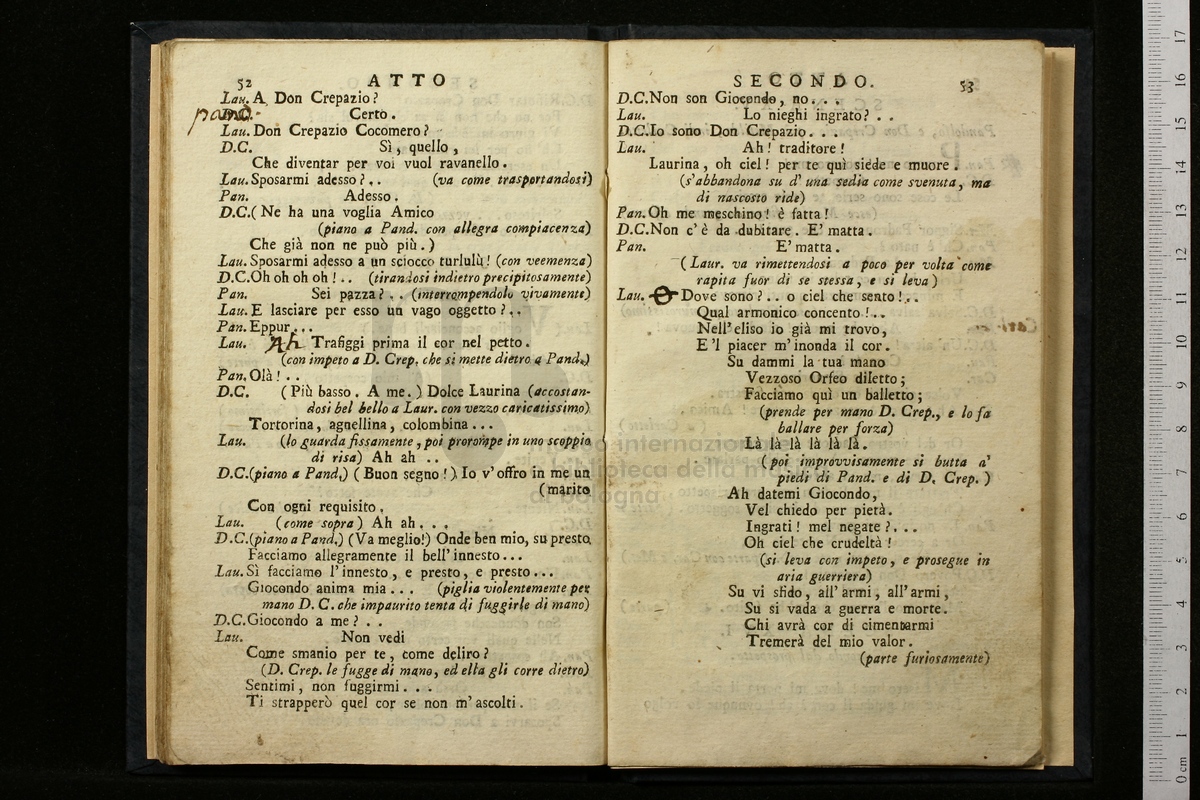 52 ATTO
Lau. A Don Crepazio?
pand. Certo.
Lau. Don Crepazio Cocomero?
D.C. Sì, quello,
Che diventar per voi vuol ravanello.
Lau. Sposarmi adesso?.. (va come trasportandosi)
Pan. Adesso.
D.C. ( Ne ha una voglia Amico
(piano a Pand. con allegra compiacenza)
Che già non ne può più.)
Lau. Sposarmi adesso a un sciocco turlulù! (con veemenza)
D.C. Oh oh oh oh!.. (tirandosi indietro precipitosamente)
Pan. Sei pazza?.. (interrompendolo vivamente)
Lau. E lasciare per esso un vago oggetto?..
Pan. Eppur...
Lau. Ah Trafiggi prima il cor nel petto.
(con impeto a D. Crep. che si mette dietro a Pand.)
Pan. Olà!..
D.C. (Più basso. A me.) Dolce Laurina (accostan-
dosi bel bello a Laur. con vezzo caricatissimo)
Tortorina, agnellina, colombina...
Lau. (lo guarda fissamente, poi prorompe in uno scoppio
di risa) Ah ah..
D.C. (piano a Pand.) (Buon segno!) Io v'offro in me un
(marito
Con ogni requisito.
Lau. (come sopra) Ah ah...
D.C. (piano a Pand.) (Va meglio!) Onde ben mio, su presto
Facciamo allegramente il bell'innesto...
Lau. Sì facciamo l'innesto, e presto, e presto...
Giocondo anima mia... (piglia violentemente per
mano D. C. che impaurito tenta di fuggirle di mano)
D.C. Giocondo a me?..
Lau. Non vedi
Come smanio per te, come deliro?
(D. Crep. le fugge di mano, ed ella gli corre dietro)
Sentimi, non fuggirmi...
Ti strapperò quel cor se non m'ascolti.
SECONDO. 53
D.C. Non son Giocondo, no...
Lau. Lo nieghi ingrato?..
D.C. Io sono Don Crepazio...
Lau. Ah! traditore!
Laurina, oh ciel! per te quì siede e muore.
(s'abbandona su d'una sedia come svenuta, ma
di nascosto ride)
Pan. Oh me meschino! è fatta!
D.C. Non c'è da dubitare. E' matta.
Pan. E' matta.
(Laur. va rimettendosi a poco per volta come
rapita fuor di se stessa, e si leva)
Lau. Dove sono?.. o ciel che sento!..
Qual armonico concento!..
Nell'eliso io già mi trovo,
E'l piacer m'inonda il cor.
Su dammi la tua mano
Vezzoso Orfeo diletto;
Facciamo quì un balletto;
(prende per mano D. Crep., e lo fa
ballare per forza)
Là là là là là là.
(poi improvvisamente si butta a'
piedi di Pand. e di D. Crep.)
Ah datemi Giocondo,
Vel chiedo per pietà.
Ingrati! mel negate?...
Oh ciel che crudeltà!
(si leva con impeto, e prosegue in
aria guerriera)
Su vi sfido, all'armi, all'armi,
Su si vada a guerra e morte.
Chi avrà cor di cimentarmi
Tremerà del mio valor.
(parte furiosamente)